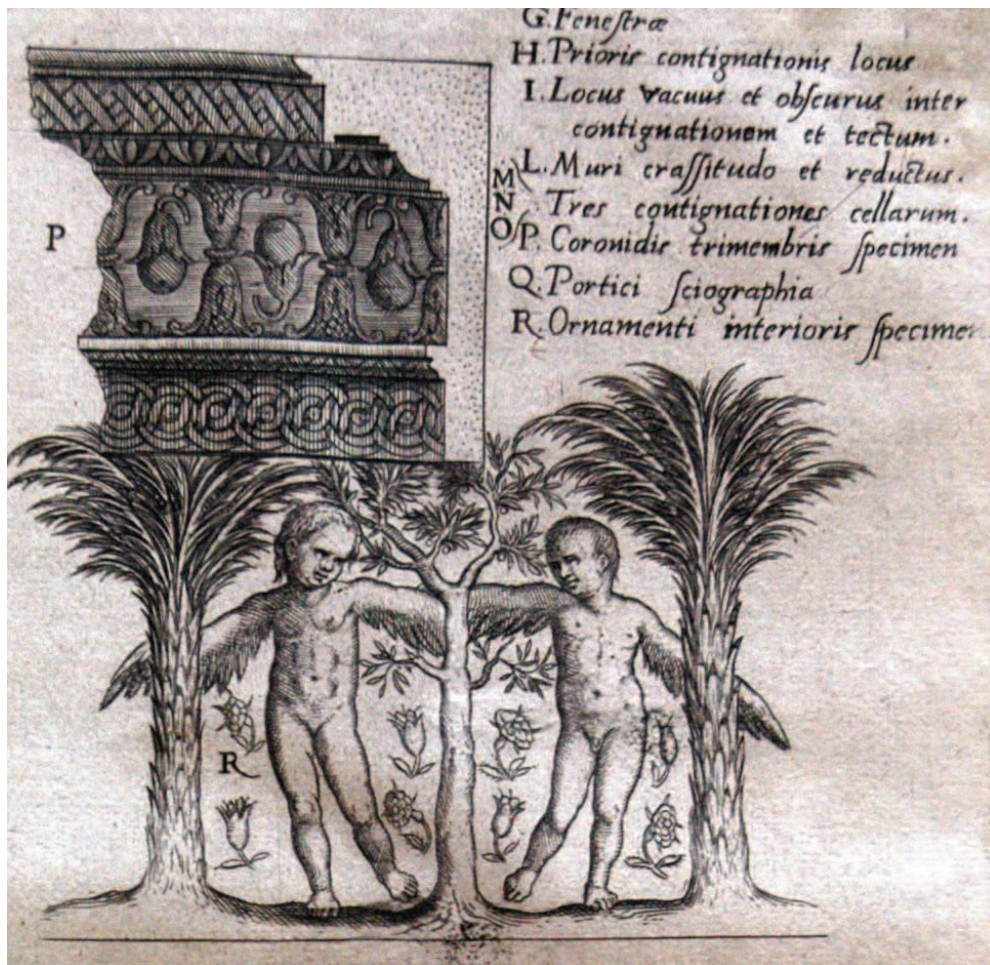 G. Feneſtræ
H. Prioris contignationis locus
I. Locus vacuus et obſcurus inter
contignationem et tectum.
L. Muri craſſitudo et reductus.
M
N
O
Tres contignationes cellarum.
P. Coronidis trimembris ſpecimen
Q. Portici ſciographia
R. Ornamenti interioris ſpecimen
P
R